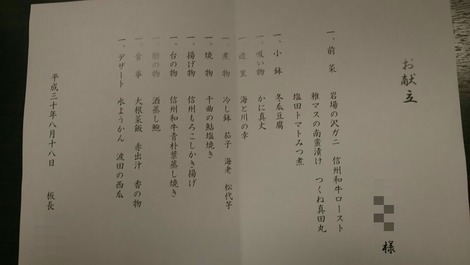 お献立
様
一、前菜 岩場の沢ガニ 信州和牛ロースト
稚マスの南蛮漬け つくね真田丸
塩田トマトみつ煮
一、小鉢 冬瓜豆腐
一、吸い物 かに真丈
一、造里 海と川の幸
一、煮物 冷し鉢 茄子 海老 松代芋
一、焼物 千曲の鮎塩焼き
一、揚げ物 信州もろこしかき揚げ
一、台の物 信州和牛青朴葉蒸し焼き
一、酢の物 酒蒸し鮑
一、食事 大根菜飯 赤出汁 香の物
一、デザート 水ようかん 波田の西瓜
平成三十年八月十八日 板長